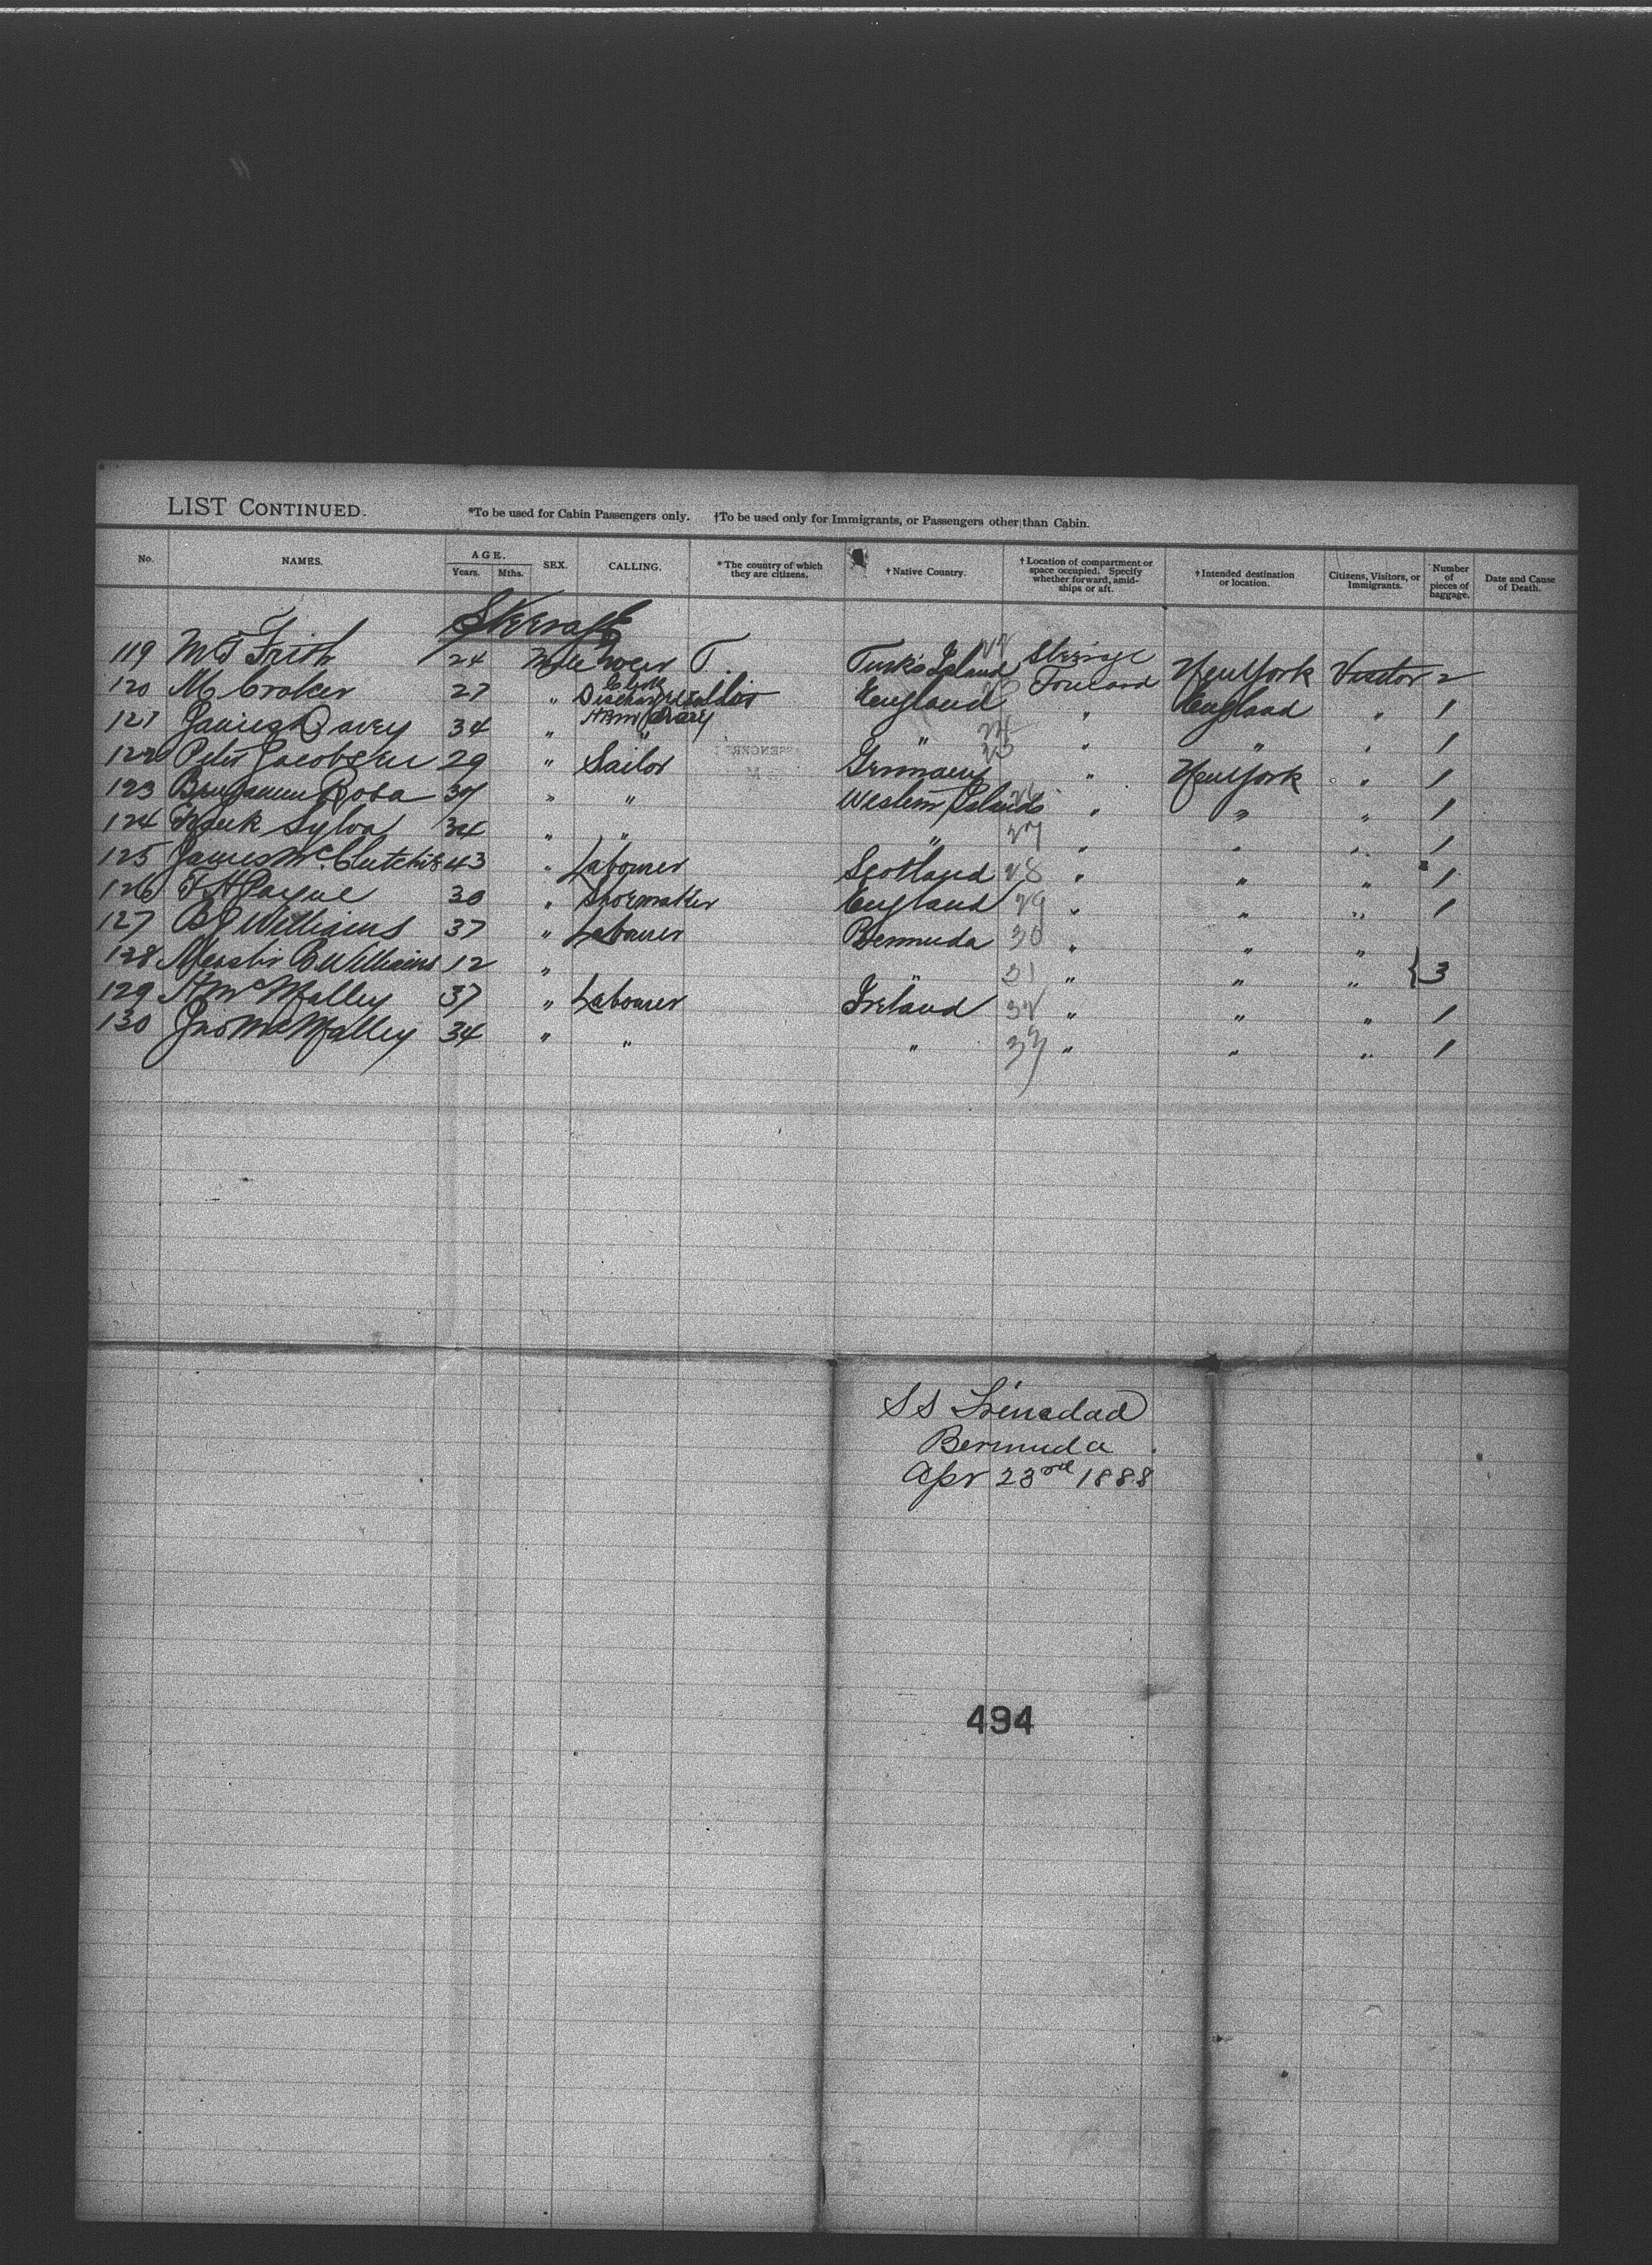 LIST CONTINUED.
*To be used for Cabin Passengers only. †To be used only for Immigrants, or Passengers other than Cabin.
No. NAMES. AGE. Years. Mths. SEX. CALLING. *The country of which they are citizens. †Native Country. †Location of compartment or space occupied. Specify whether forward, amidships or aft. †Intended destination or location. Citizens, Visitors, or Immigrants. Number of pieces of baggage. Date and Cause of Death.
Steerage
119 M T Frith 24 Male T. Turk's Island Steerage Forward New York Visitor 2
120 M Croker 27 " Clerk England " England " 1
121 James Davey 34 " " " " " " 1
122 Peter Jacobsen 29 " Sailor Germany " New York " 1
123 Benjamin Rosa 37 " " Western Islands " " " 1
124 Frank Sylva 34 " " " 27 " " " 1
125 James Mc 43 " Labourer Scotland 28 " " " 1
126 F H Payne 30 " Shoemaker England 29 " " " 1
127 B J Williams 37 " Labourer Bermuda 30 " " "
128 Master B Williams 12 " " 31 " " " { 3
129 H Mc Malley 37 " Labourer Ireland 32 " " " 1
130 Jno Mc Malley 34 " " " 33 " " " 1
S S Trinidad
Bermuda
Apr 23rd 1888
494